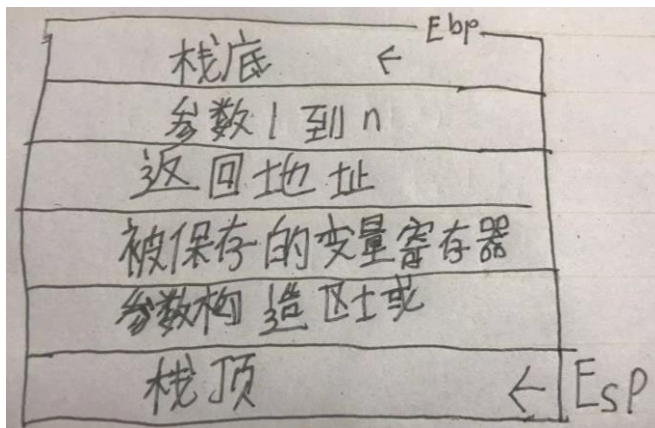 Ebp
栈底 ←
参数1到n
返回地址
被保存的变量寄存器
参数构造区域
栈顶 ← Esp